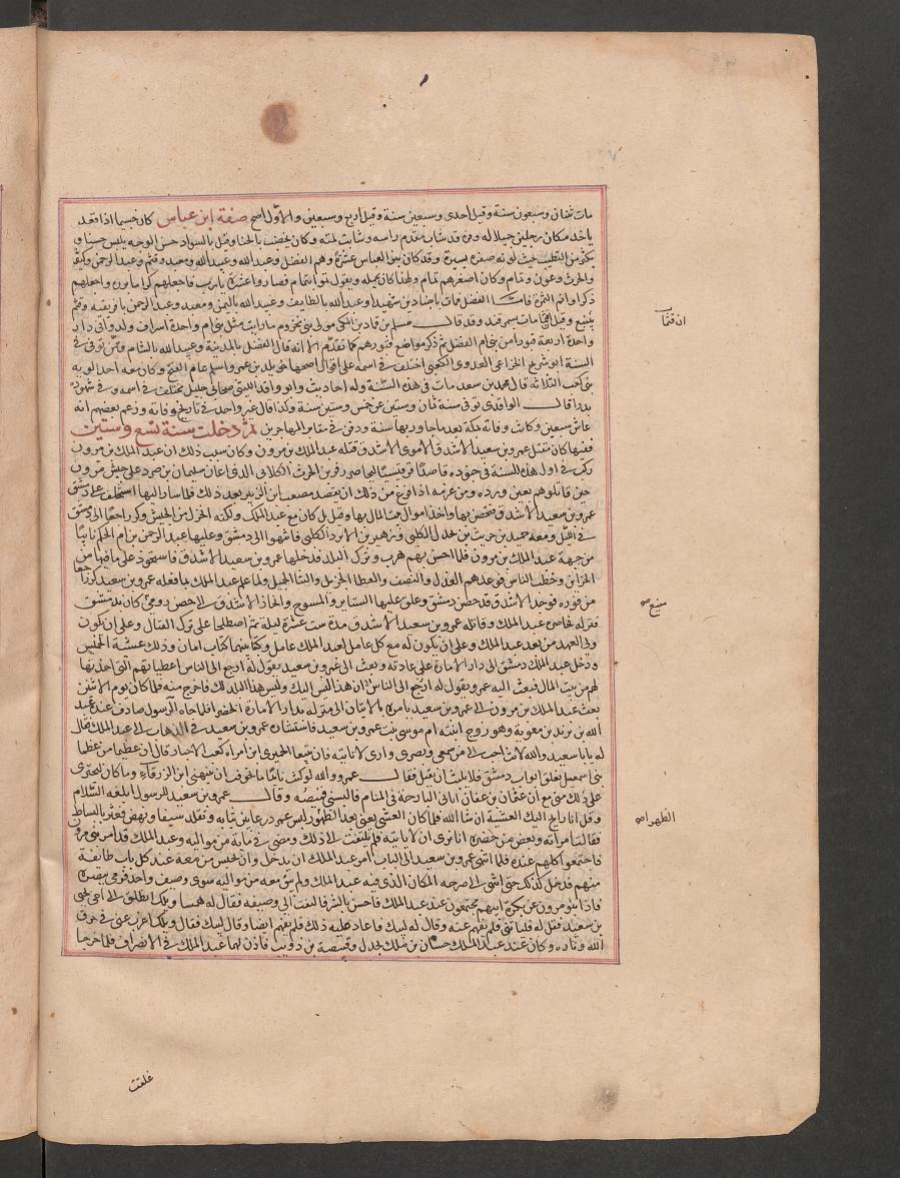 مات ثنتان وسبعون سنة وقيل احدى وسبعين سنة وقيل اربع وسبعين والاول اصح صفة ابن عباس كان جسيما اذا قعد
ياخذ مكان رجلين جميلا له وفرة قد شاب مقدم راسه وشابت لمته وكان يخضب بالحنا وقيل بالسواد حسن الوجه يلبس حسنا و
يكثر من الطيب حيث لونه صفرة يسيرة وقد كان بنى العباس عشرة وهم الفضل وعبد الله وعبيد الله ومعبد وقثم وعبد الرحمن وكثير
والحرث وعون وتمام وكان اصغرهم تمام ولهذا كان يحمله ويقول تموا بتمام فصاروا عشرة يا رب فاجعلهم كراما بررة واجعلهم
ذكرا وانم الثمرة فاما الفضل فمات باجنادين شهيدا وعبد الله بالطايف وعبيد الله باليمن ومعبد وعبد الرحمن بافريقية وقثم
بينبع وقيل مات بسمرقند وقد قال مسلم بن المكى مولى بنى مخزوم ما رايت مثل بنى ام واحدة اشراف ولدوا فى دار
واحدة ابعد قبورا من بنى ام الفضل ثم ذكر مواضع قبورهم كما تقدم الا انه قال الفضل بالمدينة وعبيد الله بالشام وممن توفى فى
السنة ابو شريح الخزاعى العدوى الكعبى اختلف فى اسمه على اقوال اصحها خويلد بن عمرو اسلم عام الفتح وكان معه احد الوية
بنى كعب الثلاثة قال محمد بن سعد مات فى هذه السنة وله احاديث وابو واقد الليثى صحابى جليل مختلف فى اسمه وفى شهوده
بدرا قال الواقدى توفى سنة ثمان وستين عن خمس وستين سنة وكذا قال غير واحد فى تاريخ وفاته وزعم بعضهم انه
عاش سبعين وكانت وفاته بمكة بعد ما جاور بها سنة ودفن فى مقابر المهاجرين ثم دخلت سنة تسع وستين
ففيها كان مقتل عمرو بن سعيد الاشدق الاموى الاشدق قتله عبد الملك بن مرون وكان سبب ذلك ان عبد الملك بن مرون
ركب فى اول هذه السنة فى جنوده قاصدا قرقيسيا ليحاصر زفر بن الحرث الكلابى الذى اعان سليمان بن صرد على جيش مرون
حين قاتلوهم بعين وردة ومن عزمه اذا فرغ من ذلك ان يقصد مصعب ابن الزبير بعد ذلك فلما سار اليها استخلف على دمشق
عمرو بن سعيد الاشدق فتحصن بها واخذ اموال بيت المال بها وقيل بل كان مع عبد الملك ولكنه انخزل من الجيش وكر راجعا الى دمشق
فى الليل ومعه حميد بن حريث بن بحدل الكلبى وزهير بن الابرد الكلبى فانتهوا الى دمشق وعليها عبد الرحمن بن ام الحكم نائبا
من جهة عبد الملك بن مرون فلما احس بهم هرب وترك البلد فدخلها عمرو بن سعيد الاشدق فاستحوذ على ما فيها من
الخزاين وخطب الناس فوعدهم العدل والنصف والعطا الجزيل والثنا الجميل ولما علم عبد الملك بما فعله عمرو بن سعيد كر راجعا
من فوره فوجد الاشدق قد حصن دمشق وعلق عليها الستاير والمسوح وانحاز الاشدق الى حصن رومى كان بدمشق
فنزله فحاصره عبد الملك وقاتله عمرو بن سعيد الاشدق مدة ست عشرة ليلة ثم اصطلحا على ترك القتال وعلى ان يكون
ولى العهد من بعد عبد الملك وعلى ان يكون له مع كل عامل لعبد الملك عامل وكتبا بينهما كتاب امان وذلك عشية الخميس
ودخل عبد الملك دمشق الى دار الامارة على عادته وبعث الى عمرو بن سعيد يقول له اردد الى الناس اعطياتهم التى اخذتها
لهم من بيت المال فبعث اليه عمرو يقول له ان هذا ليس اليك وليس هذا البلد لك فاخرج منه فلما كان يوم الاثنين
بعث عبد الملك بن مرون الى عمرو بن سعيد يامره بالاتيان الى منزله بدار الامارة الخضرا فلما جاه الرسول صادف عنده عبد
الله بن يزيد بن معوية وهو زوج ابنته ام موسى بنت عمرو بن سعيد فاستشاره عمرو بن سعيد فى الذهاب الى عبد الملك فقال
له يابا سعيد والله لانت احب الى من سمعى وبصرى وارى ان لا تاتيه فان تبيعا الحميرى ابن امراة كعب الاحبار قال ان عظيما من عظما
بنى اسمعيل يغلق ابواب دمشق فلا يلبث ان يقتل فقال عمرو والله لو كنت نائما ما تخوفت ان ينبهنى ابن الزرقاء وما كان ليجترى
على ذلك منى مع ان عثمان بن عفان اتانى البارحة فى المنام فالبسنى قميصه وقال عمرو بن سعيد للرسول ابلغه السلام
وقل انا رايح اليك العشية ان شا الله فلما كان العشى يعنى بعد الظهر لبس عمرو درعا بين ثيابه وتقلد سيفا ونهض فعثر بالبساط
فقالت امراته وبعض من حضره انا نرى ان لا تاتيه فلم يلتفت الى ذلك ومضى فى ماية من مواليه وعبد الملك قد امر بنى مرون
فاجتمعوا كلهم عنده فلما انتهى عمرو بن سعيد الى الباب امر عبد الملك ان يدخل وان يحبس من معه عند كل باب طائفة
منهم فدخل كذلك حتى انتهى الى صرحة المكان الذى فيه عبد الملك ولم يبق معه من مواليه سوى وصيف واحد فرمى ببصره
فاذا بنو مرون عن بكرة ابيهم مجتمعون عند عبد الملك فاحس بالشر فالتفت الى وصيفه فقال له همسا ويلك انطلق الى اخى يحيى
بن سعيد فقل له فلياتنى فلم يفهم عنه وقال له لبيك فاعاد عليه ذلك فلم يفهم ايضا وقال لبيك فقال ويلك اعزب عنى فى حرق
الله وناره وكان عند عبد الملك حسان بن ملك بجدل وقبيصة بن ذويب فاذن لهما عبد الملك فى الانصراف فلما خرجا
منيع
الظهر
غلقت